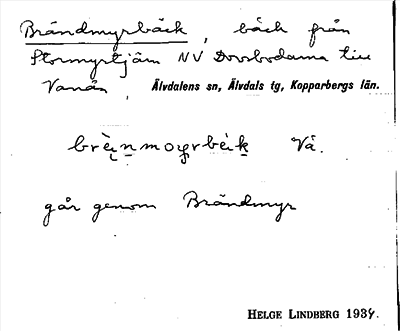 Brändmyrbäck, bäck från
Stormyrtjärn NV Dovsbodarna till
Vanån, Älvdalens sn, Älvdals tg, Kopparbergs län.
Vå.
går genom Brändmyr
HELGE LINDBERG 1937.